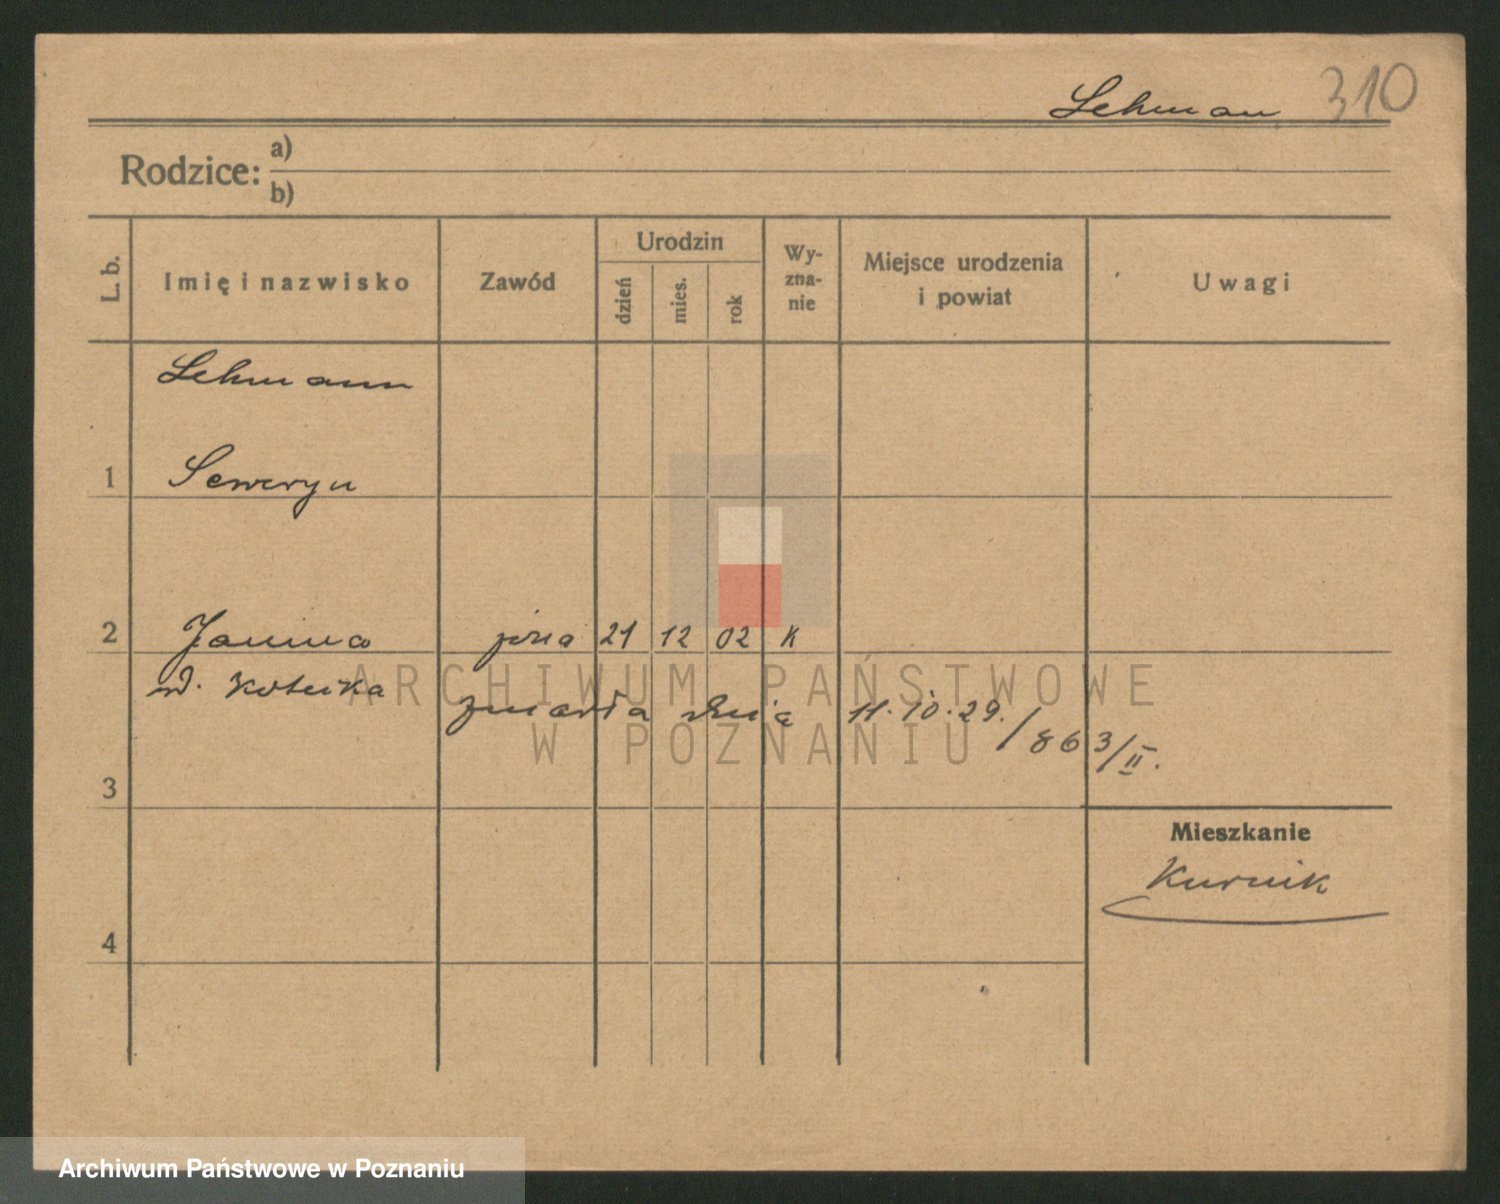 Lehman 310
Rodzice: a)
b)
L. b. Imię i nazwisko Zawód Urodzin Wy-zna-nie Miejsce urodzenia i powiat Uwagi
dzień mies. rok
Lehmann
1 Seweryn
2 Janina żona 21 12 02 K
zmarła dnia 11.10.29./863/II.
3
Mieszkanie
Kurnik
4
ARCHIWUM PAŃSTWOWE
W POZNANIU
Archiwum Państwowe w Poznaniu